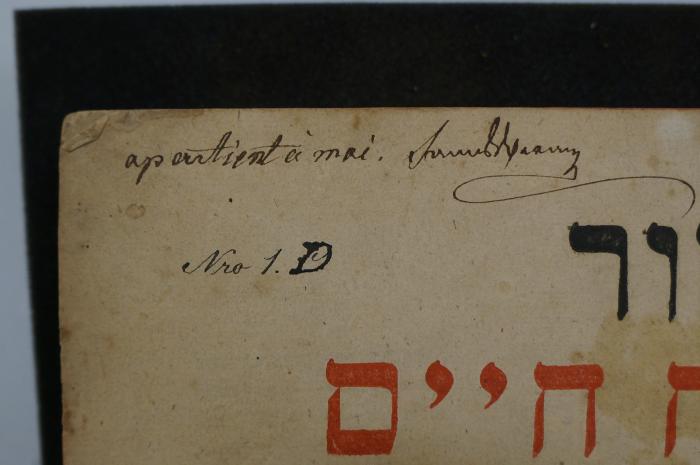 apartient à moi.
Nro 1. D
ור
ח חיים